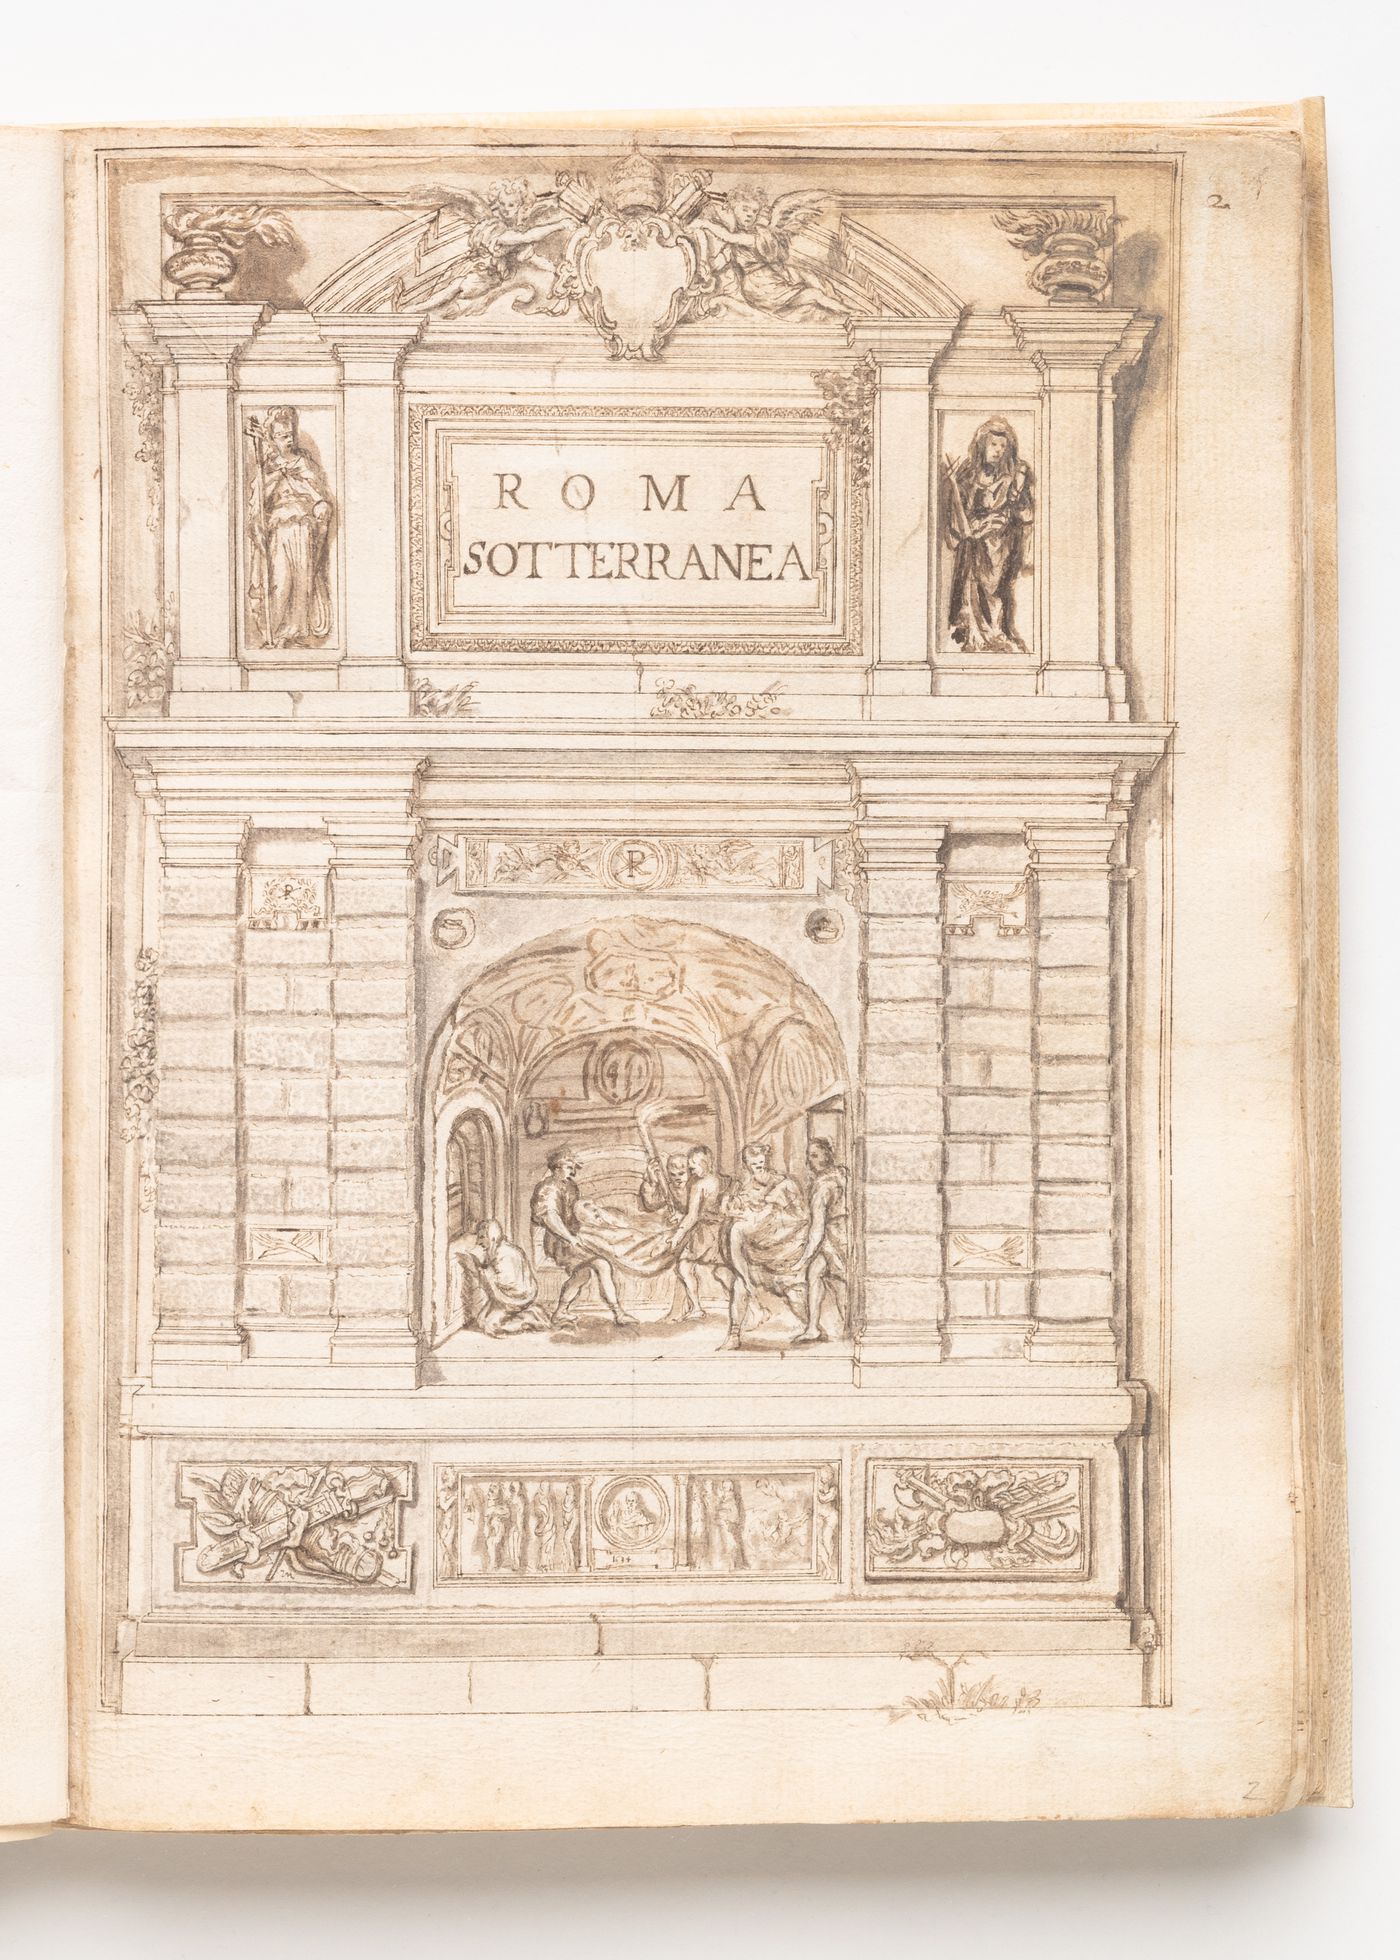 2
ROMA
SOTTERRANEA
2